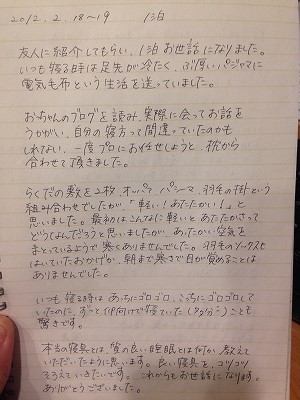 2012. 2. 18〜19　1泊
友人に紹介してもらい、1泊お世話になりました。
いつも寝る時は足先が冷たく、ぶ厚いパジャマに
電気毛布という生活を送っていました。
おーちゃんのブログを読み、実際に会ってお話を
うかがい、自分の寝方って間違っていたのかも
しれない、一度プロにお任せしようと、枕から
合わせて頂きました。
らくだの敷を2枚、オッパァ パシーマ、羽毛の掛という
組み合わせでしたが「軽い！あたたかい！」と
思いました。最初はこんなに軽いとあたたかさって
どうなんだろうと思いましたが、あたたかい空気を
まとっているようで寒くありませんでした。羽毛のソックスも
はいていたおかげか、朝まで寒さで目が覚めることは
ありませんでした。
いつも寝る時はあっちにゴロゴロ、こっちにゴロゴロして
いたのに、ずっと仰向けで寝ていた(多分)ことも
驚きです。
本当の寝具とは、質の良い睡眠とは何か教えて
いただいたように思います。良い寝具を、コツコツ
そろえていきたいです。これからもお世話になります。
ありがとうございました。